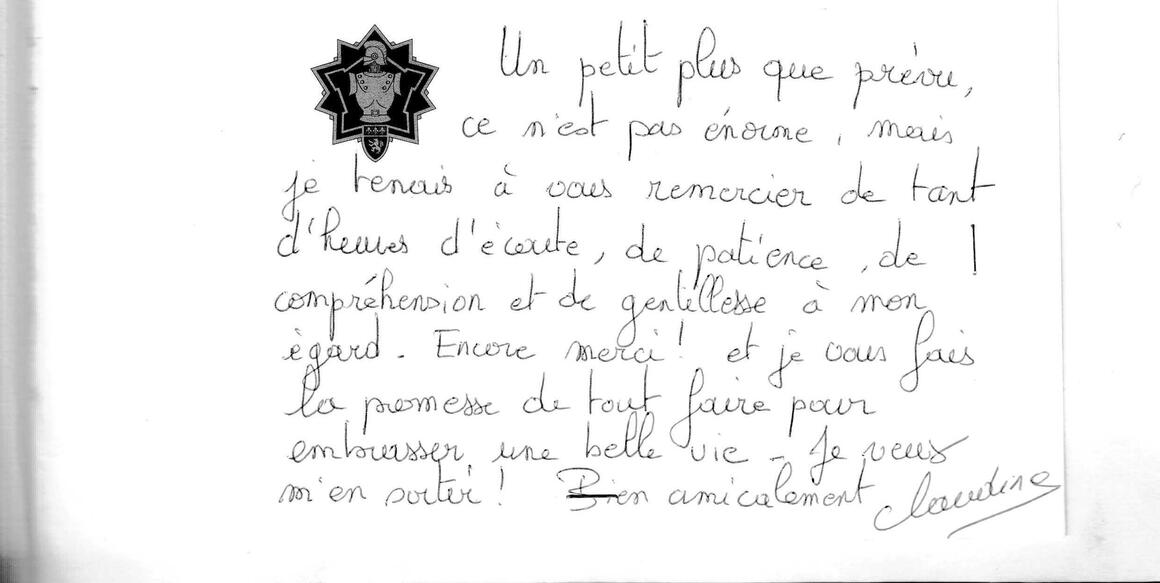 Un petit plus que prévu,
ce n'est pas énorme, mais
je tenais à vous remercier de tant
d'heures d'écoute, de patience, de
compréhension et de gentillesse à mon
égard. Encore merci! et je vous fais
la promesse de tout faire pour
embrasser une belle vie - Je veux
m'en sortir! Bien amicalement Claudine